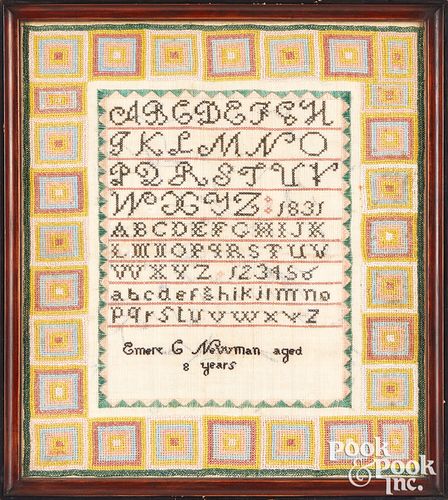 ABCDEFGH
JKLMNO
PQRSTUV
WXYZ : 1831
ABCDEFGHIJK
LMNOPQRSTUV
WXYZ 123456
abcdefghikjlmno
pqrstuvwxyz
Emere C Newman aged
8 years
POOK
& POOK
INC.